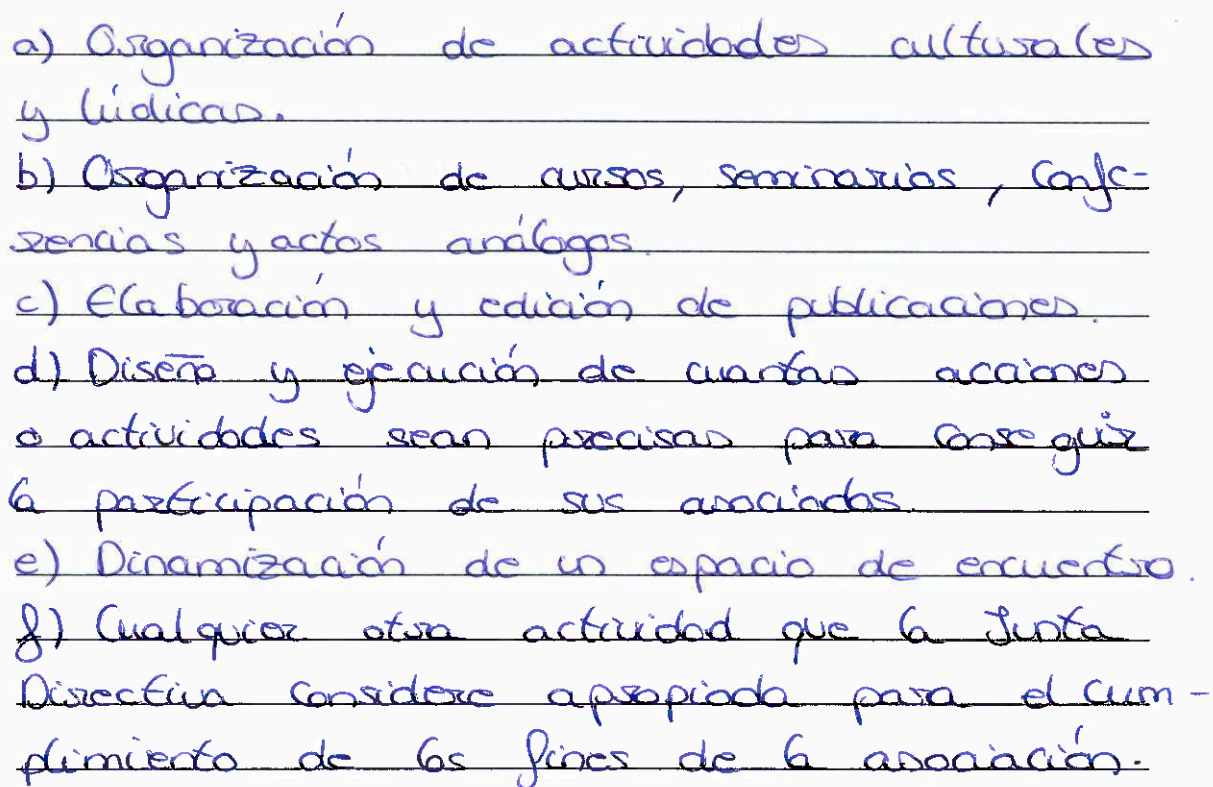 a) Organización de actividades culturales
y lúdicas.
b) Organización de cursos, seminarios, confe-
rencias y actos análogos.
c) Elaboración y edición de publicaciones.
d) Diseño y ejecución de cuantas acciones
o actividades sean precisas para conseguir
la participación de sus asociados.
e) Dinamización de un espacio de encuentro.
f) Cualquier otra actividad que la Junta
Directiva considere apropiada para el cum-
plimiento de los fines de la asociación.